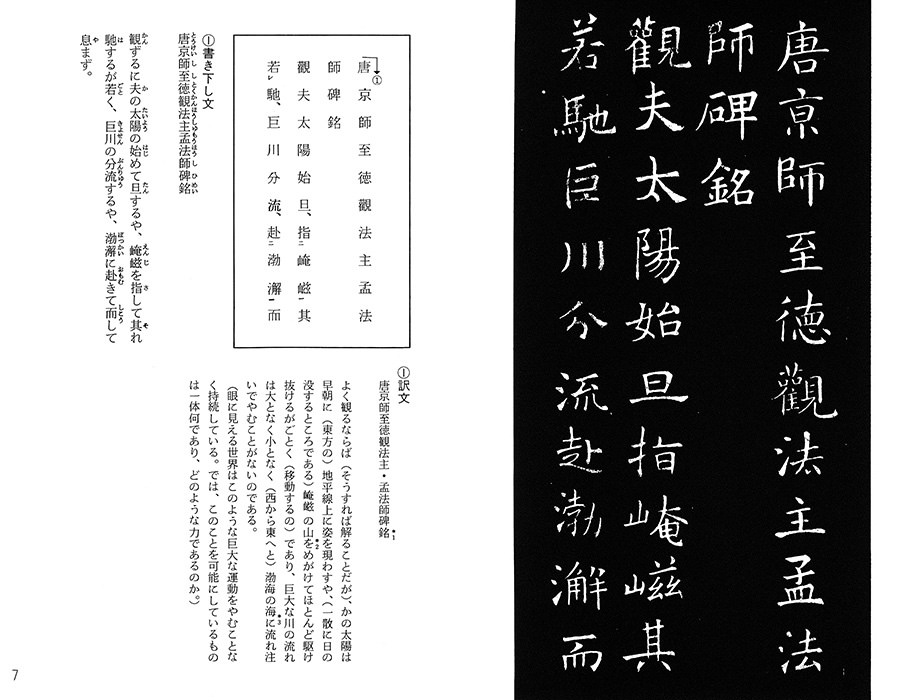 唐京師至德觀法主孟法
師碑銘
觀夫太陽始旦指崦嵫其
若馳巨川分流赴渤澥而
唐①京師至德觀法主孟法
師碑銘
觀夫太陽始旦、指二崦嵫一其
若レ馳、巨川分流、赴二渤澥一而
①書き下し文
唐京師至徳観法主孟法師碑銘
とうけいししとくかんほうしゅもうほうしひめい
観ずるに夫の太陽の始めて旦するや、崦嵫を指して其れ
かん か たいよう はじ たん えんじ さ そ
馳するが若く、巨川の分流するや、渤澥に赴きて而して
は ごと きょせん ぶんりゅう ぼっかい おもむ しこう
息まず。
や
①訳文
唐京師至徳観法主・孟法師碑銘*1
よく観るならば(そうすれば解ることだが)、かの太陽は
早朝に(東方の)地平線上に姿を現わすや、(一散に日の
没するところである)崦嵫の山*2をめがけてほとんど駆け
抜けるがごとく(移動するの)であり、巨大な川の流れ
は大となく小となく(西から東へと)渤海の海*3に流れ注
いでやむことがないのである。
(眼に見える世界はこのような巨大な運動をやむことな
く持続している。では、このことを可能にしているもの
は一体何であり、どのような力であるのか。)
7